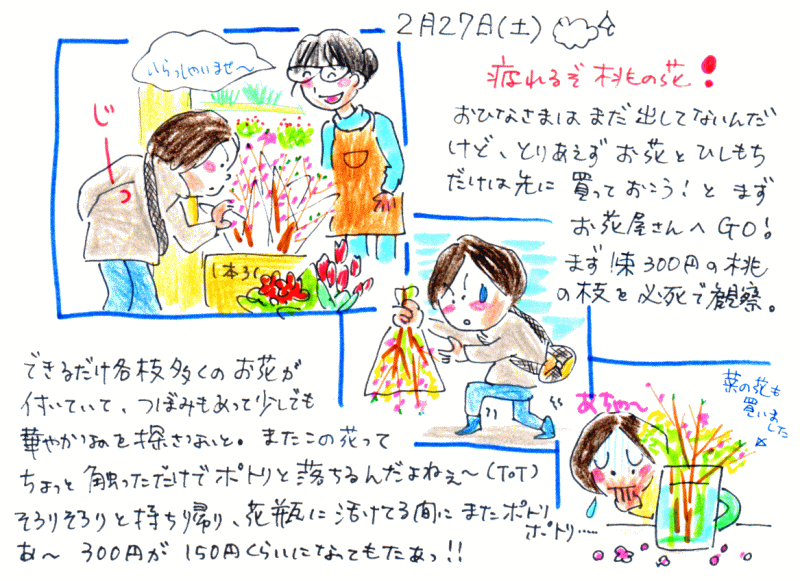 2月27日(土)
疲れるぞ桃の花!
いらっしゃいませ〜
じーっ
おひなさまは まだ出してないんだ
けど、とりあえず お花と ひしもち
だけは先に 買っておこう!と まず
お花屋さんへ GO!
まず1束300円の桃
の枝を必死で観察。
できるだけ各枝多くの お花が
付いていて、つぼみもあって少しでも
華やかなのを探さないと。またこの花って
ちょっと触っただけでポトリと落ちるんだよねぇ〜(ToT)
そろりそろりと持ち帰り、花瓶に活けてる間にまたポトリ
ポトリ……
あ〜 300円が 150円くらいになってもたあっ!!
あちゃ〜
菜の花も
買いました